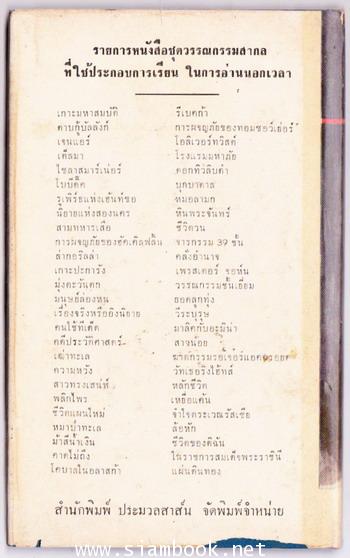 รายการหนังสือชุดวรรณกรรมสากล
ที่ใช้ประกอบการเรียน ในการอ่านนอกเวลา
เกาะมหาสมบัติ
ดาบกู้บัลลังก์
เจนแอร์
เค็ลมา
ไซลาสมาร์เน่อร์
โมบี้ดิ๊ค
รูเพิร์ธแห่งเฮ็นท์ซอ
นิยายแห่งสองนคร
สามทหารเสือ
การผจญภัยของฮัคเคิลฟิ้น
ล่ากอริลล่า
เกาะปะการัง
มุ่งตะวันตก
มนุษย์ล่องหน
เรื่องจริงหรืออิงนิยาย
คนใช้ทีเด็ด
คดีประวัติศาสตร์
เฒ่าทะเล
ความหวัง
สาวทรงเสน่ห์
พลิกไพร
ชีวิตแผนใหม่
หมาป่าทะเล
ม้าสีน้ำเงิน
คาดไม่ถึง
โคบาลในอลาสก้า
รีเบคก้า
การผจญภัยของทอมซอว์เย่อร์
โอลิเวอร์ทวิสต์
โรงแรมมหาภัย
ดอกทิวลิบดำ
บุกบาดาล
หมอลามก
หินพระจันทร์
ชีวิตวน
จารกรรม 39 ขั้น
คลังอำนาจ
เพรสเตอร์ จอห์น
วรรณกรรมชั้นเยี่ยม
ยอดลูกทุ่ง
วีระบุรุษ
มาลิคกับอะมีน่า
สาวน้อย
วัทเธอริงไฮ้ทส์
หลักชีวิต
เหยื่อแค้น
จ้าโจตระเวณรัสเซีย
ล้อหัก
ชีวิตของดิฉัน
ในราชการสมเด็จพระราชินี
แผ่นดินทอง
สำนักพิมพ์ ประมวลสาส์น จัดพิมพ์จำหน่าย
www.siambook.net